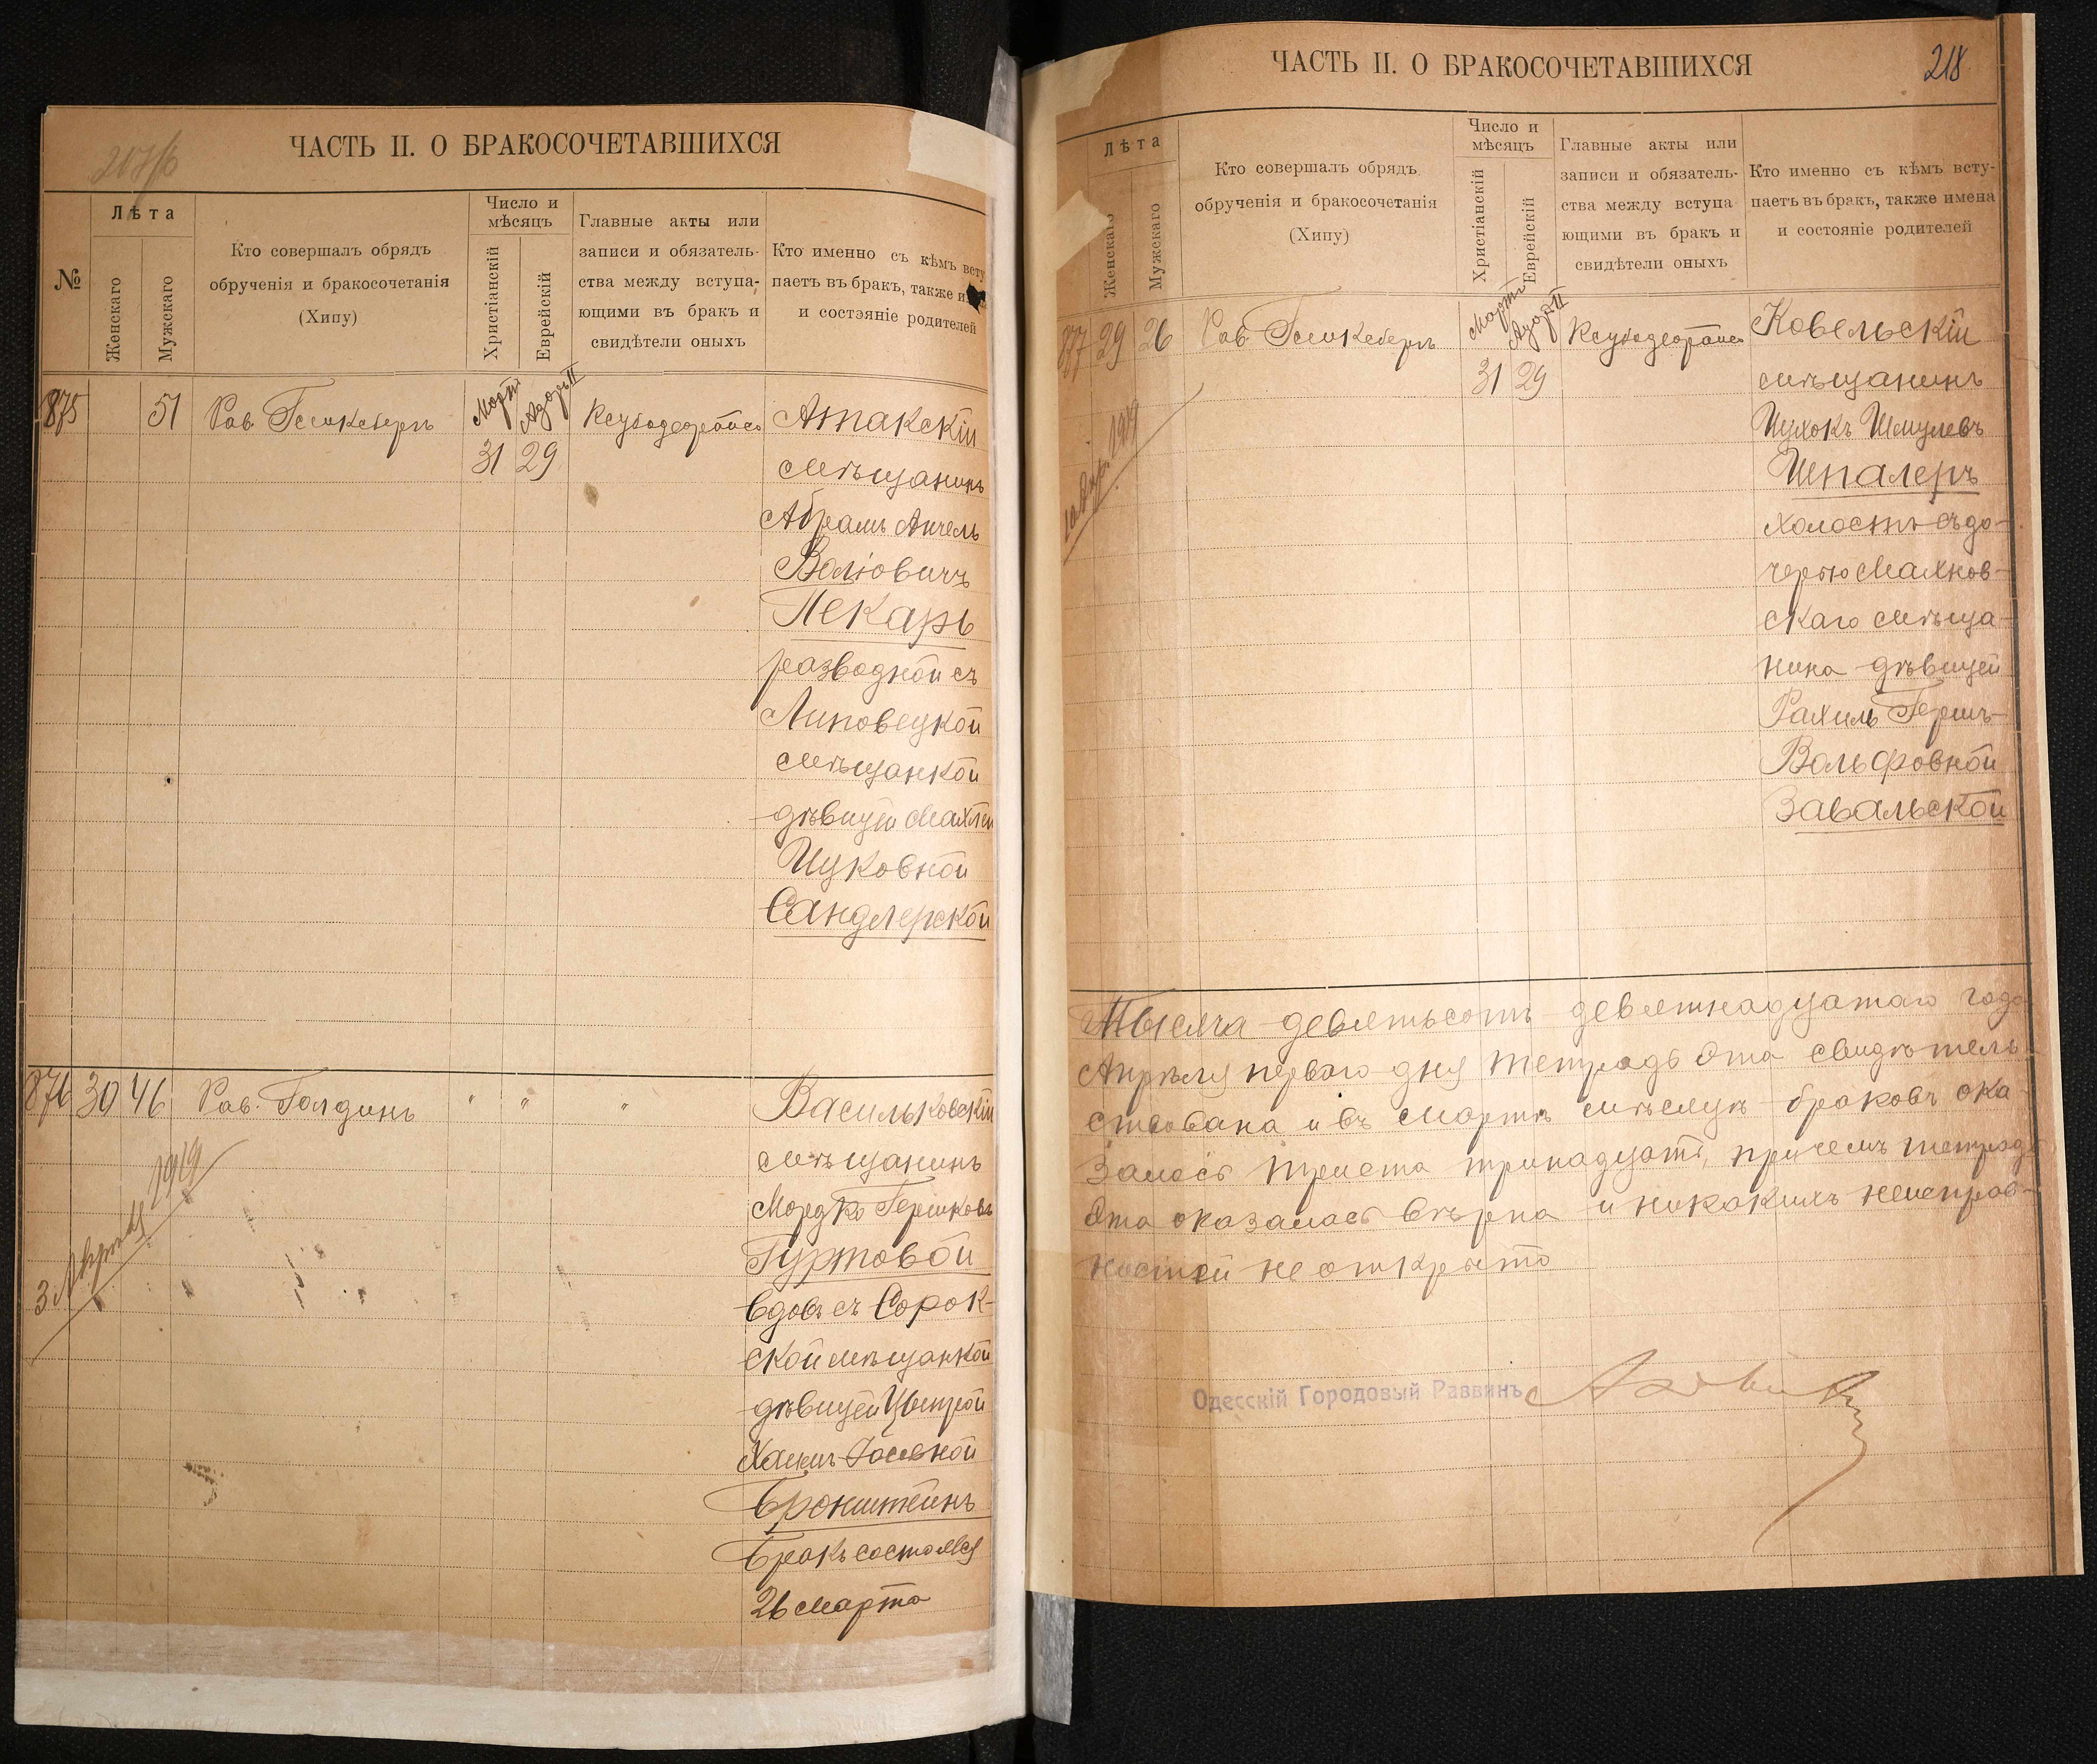 ЧАСТЬ II. О БРАКОСОЧЕТАВШИХСЯ
№
Лѣта
Женскаго
Мужскаго
Кто совершалъ обрядъ
обрученія и бракосочетанія
(Хипу)
Число и
мѣсяцъ
Христіанскій
Еврейскій
Главные акты или
записи и обязатель-
ства между вступа-
ющими въ бракъ и
свидѣтели оныхъ
Кто именно съ кѣмъ всту
паетъ въ бракъ, также и
и состояніе родителей
875
51
Рав. Гельксберъ
Мартъ
31
Адаръ II
29
Атакскій
мѣщанинъ
Абрамъ Анчель
Воліовичъ
Пекарь
разводной съ
Липовецкой
мѣщанкой
дѣвицей Махлей
Ицковной
Сандлерской
876
30
46
Рав. Голдинъ
" " "
Васильковскій
мѣщанинъ
Мордко Гершковъ
Гуртовой
вдовъ съ Сорок-
ской мѣщанкой
дѣвицей
Хаимъ-Іосевной
Бронштейнъ
Бракъ состоялся
26 Марта
3 Апрѣля 1919
ЧАСТЬ II. О БРАКОСОЧЕТАВШИХСЯ
218
Лѣта
Женскаго
Мужскаго
Кто совершалъ обрядъ
обрученія и бракосочетанія
(Хипу)
Число и
мѣсяцъ
Христіанскій
Еврейскій
Главные акты или
записи и обязатель-
ства между вступа
ющими въ бракъ и
свидѣтели оныхъ
Кто именно съ кѣмъ всту-
паетъ въ бракъ, также имена
и состояніе родителей
877
29
26
Рав.
Мартъ
31
Адаръ II
29
Ковельскій
мѣщанинъ
Ицхокъ Шмулевъ
Шпалеръ
холостъ съ до-
черью Махнов-
скаго мѣща-
нина дѣвицей
Рахиль Гершъ-
Вольфовной
Завальской
1919
Тысяча девятьсотъ девятнадцатаго года
Апрѣля перваго дня тетрадь эта свидѣтель-
ствована и въ Мартѣ мѣсяцѣ браковъ ока-
залось триста тринадцать, причемъ тетрадь
эта оказалась вѣрна и никакихъ неисправ-
ностей не открыто
Одесскій Городовый Раввинъ